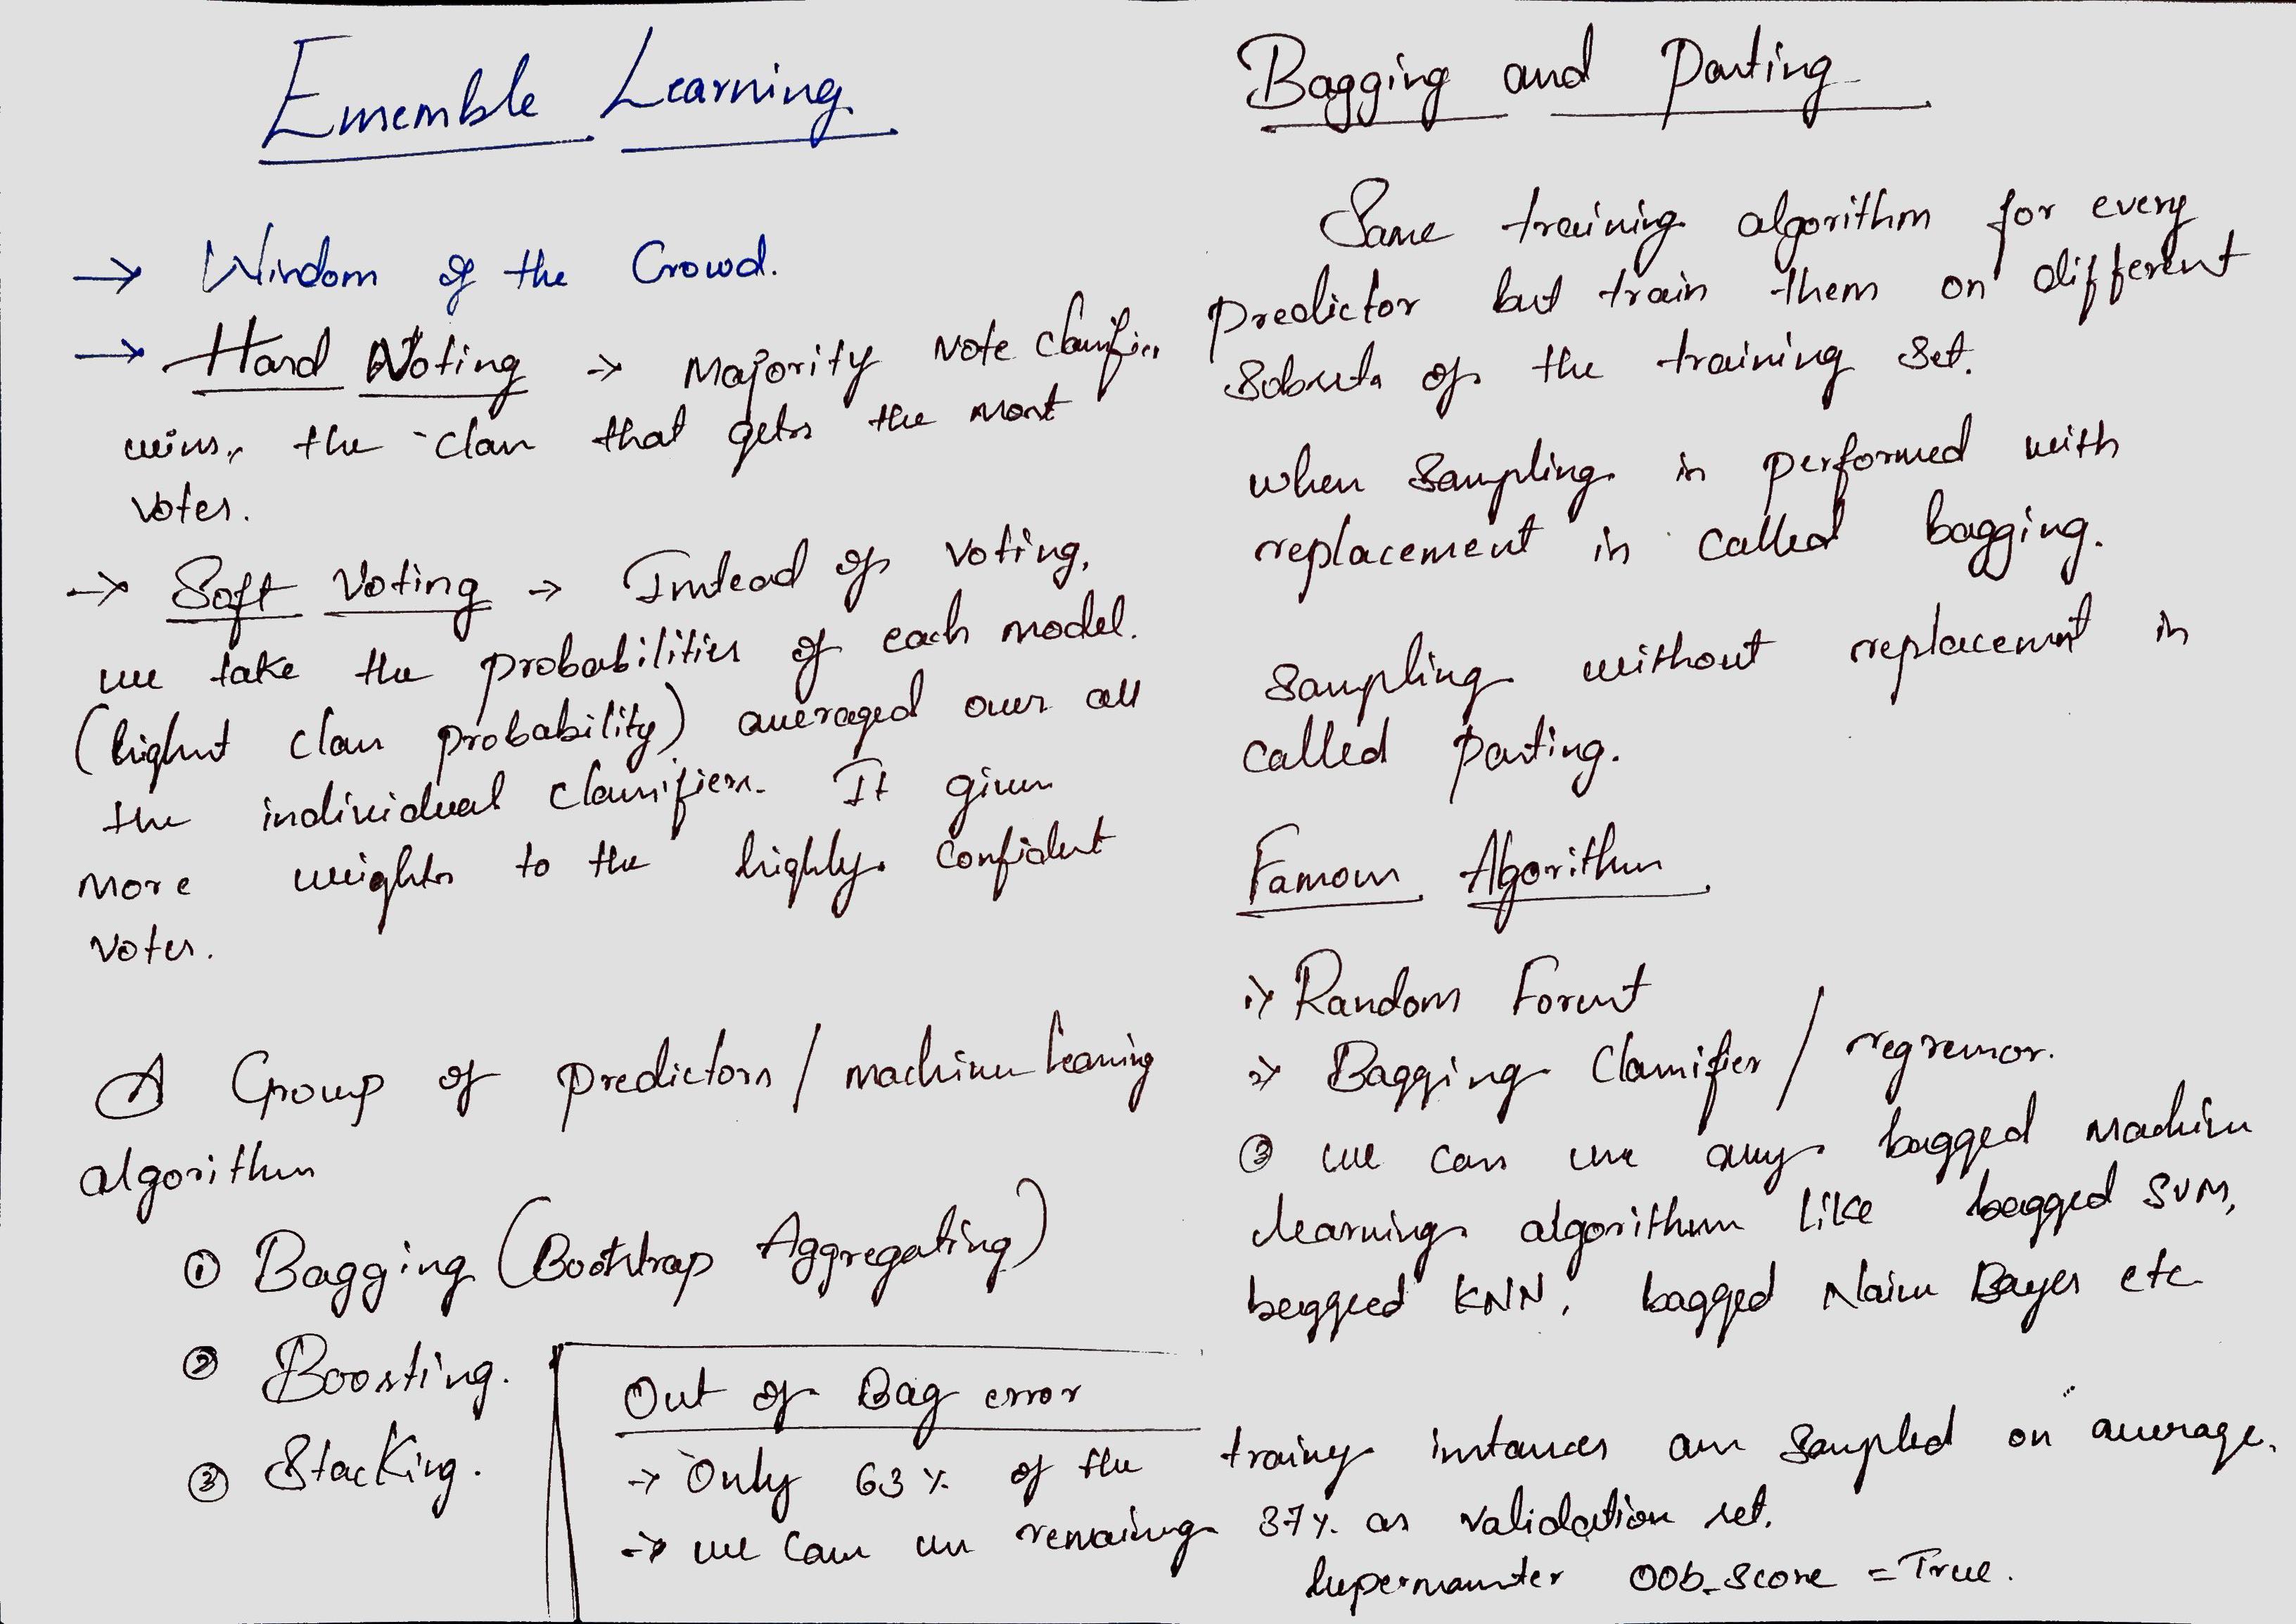 Ensemble Learning
→ Wisdom of the Crowd.
→ Hard Voting → Majority vote classifier
wins, the class that gets the most
votes.
→ Soft Voting → Instead of voting,
we take the probabilities of each model.
(highest class probability) averaged over all
the individual classifiers. It gives
more weights to the highly confident
votes.
A Group of predictors / machine learning
algorithm
① Bagging (Bootstrap Aggregating)
② Boosting.
③ Stacking.
Bagging and Pasting
Same training algorithm for every
predictor but train them on different
subsets of the training set.
when sampling is performed with
replacement is called bagging.
Sampling without replacement is
called pasting.
Famous Algorithm
1) Random Forest
2) Bagging Classifier / regressor.
③ we can use any bagged machine
learning algorithm like bagged SVM,
bagged KNN, bagged Naive Bayes etc
Out of Bag error
→ Only 63% of the training instances are sampled on average.
→ we can use remaining 37% as validation set.
hyperparameter oob_score = True.